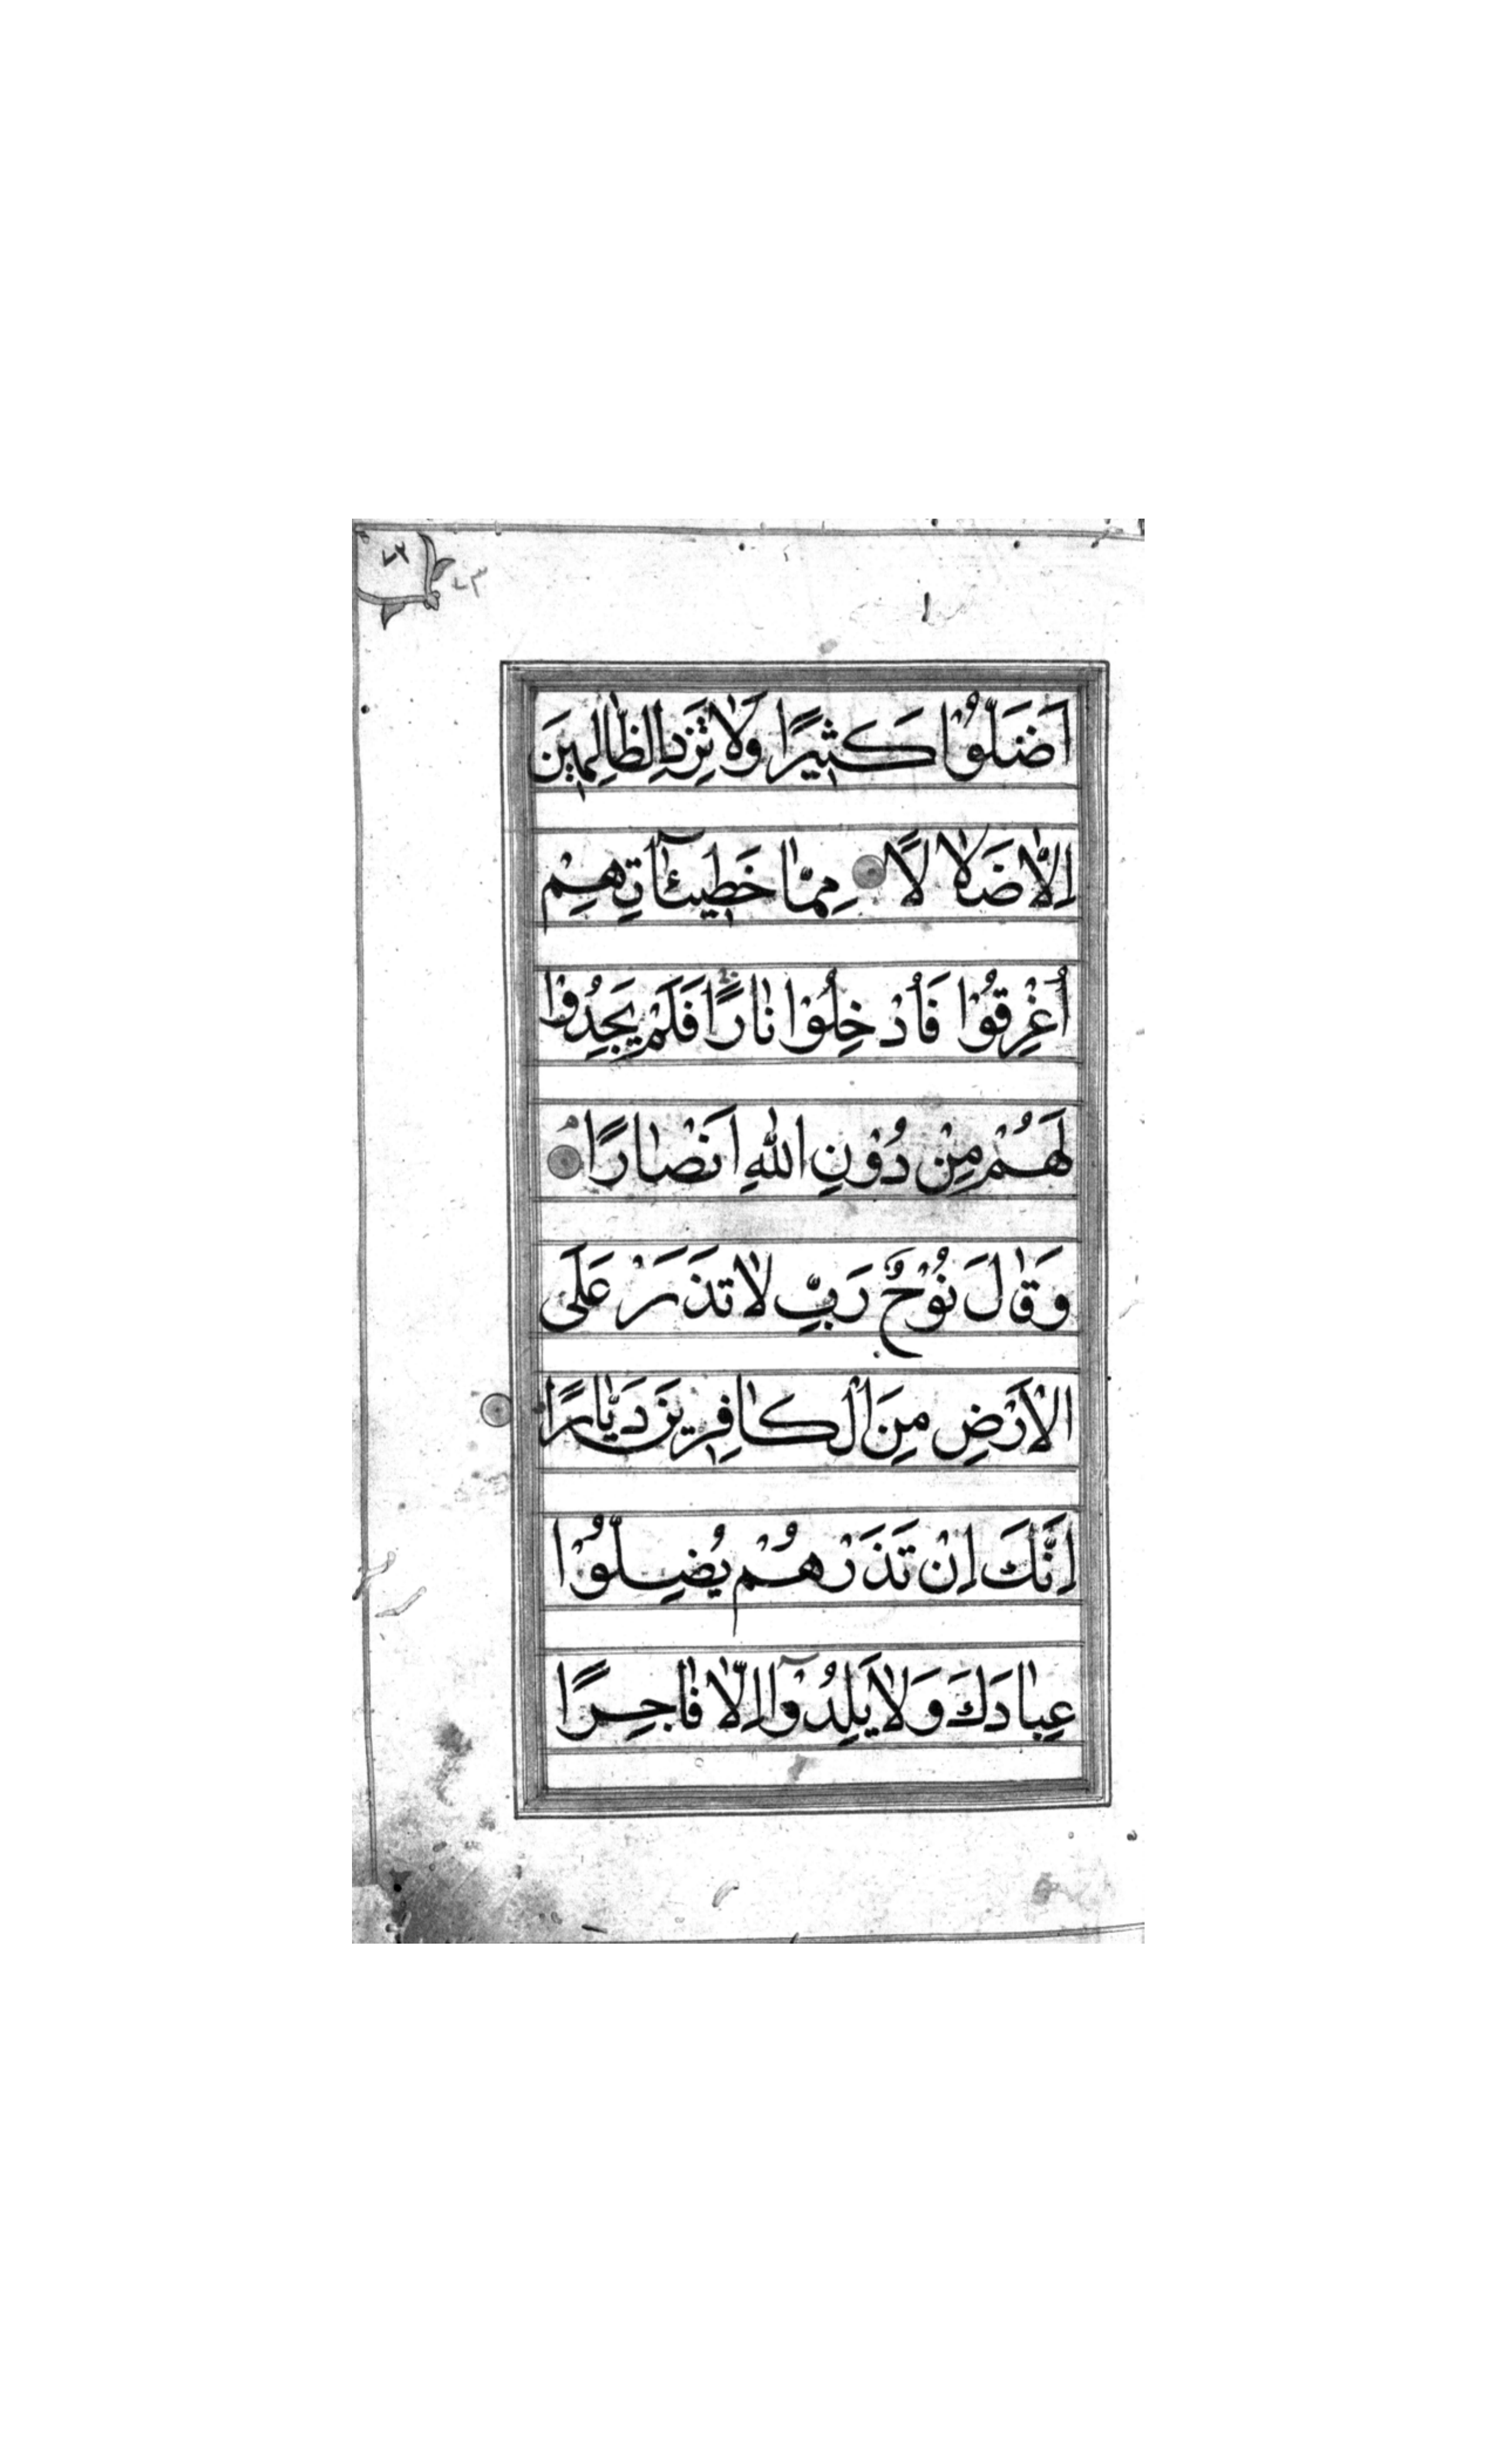 ٧٢
٧٣
اَضَلُّوْا كَثِيرًا وَلَا تَزِدِ الظَّالِمِينَ
اِلَّا ضَلَالًا مِمَّا خَطِيئَآتِهِمْ
اُغْرِقُوْا فَاُدْخِلُوْا نَارًا فَلَمْ يَجِدُوْا
لَهُمْ مِنْ دُوْنِ اللّٰهِ اَنْصَارًا
وَقَالَ نُوْحٌ رَبِّ لَا تَذَرْ عَلَى
الْاَرْضِ مِنَ الْكَافِرِينَ دَيَّارًا
اِنَّكَ اِنْ تَذَرْهُمْ يُضِلُّوْا
عِبَادَكَ وَلَا يَلِدُوْٓا اِلَّا فَاجِرًا